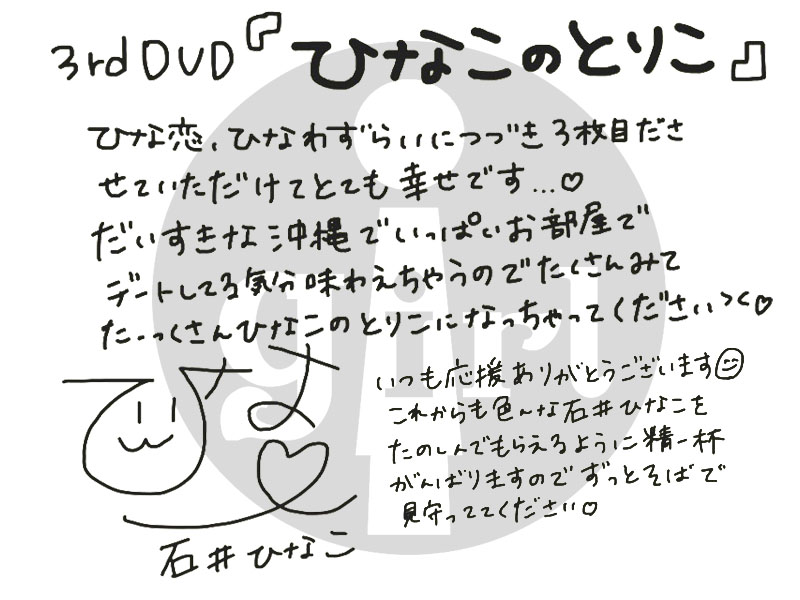 3rd DVD『ひなこのとりこ』
ひな恋、ひなわずらいにつづき3枚目ださ
せていただけてとても幸せです...♡
だいすきな沖縄でいっぱいお部屋で
デートしてる気分味わえちゃうのでたくさんみて
たーっくさんひなこのとりこになっちゃってください><♡
いつも応援ありがとうございます
これからも色んな石井ひなこを
たのしんでもらえるように精一杯
がんばりますのでずっとそばで
見守っててください♡
ひな
石井ひなこ
girl